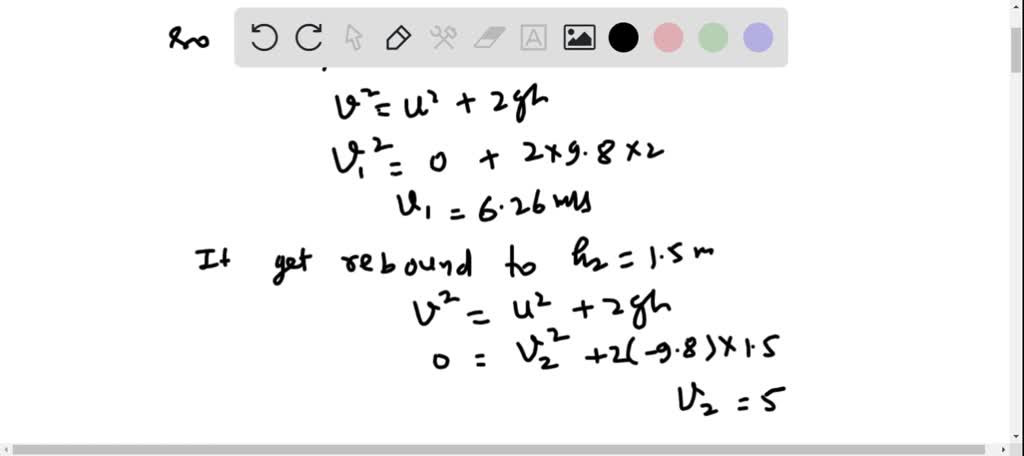 v² = u² + 2gh
v₁² = 0 + 2×9.8×2
v₁ = 6.26 m/s
It get rebound to h₂ = 1.5 m
v² = u² + 2gh
0 = v₂² + 2(-9.8)×1.5
v₂ = 5